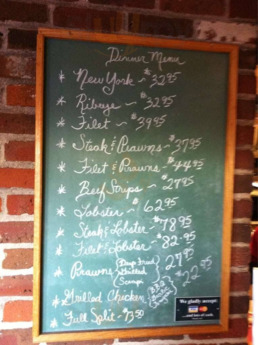 Dinner Menu
* New York ~ $32.95
* Ribeye ~ $32.95
* Filet ~ $39.95
* Steak & Prawns ~ 37.95
* Filet & Prawns ~ $44.95
* Beef Strips ~ $27.95
* Lobster ~ $62.95
* Steak & Lobster ~ $78.95
* Filet & Lobster ~ $82.95
* Prawns Deep Fried Grilled Scampi 27.95
* Grilled Chicken $22.95
* Full Split
We gladly accept: